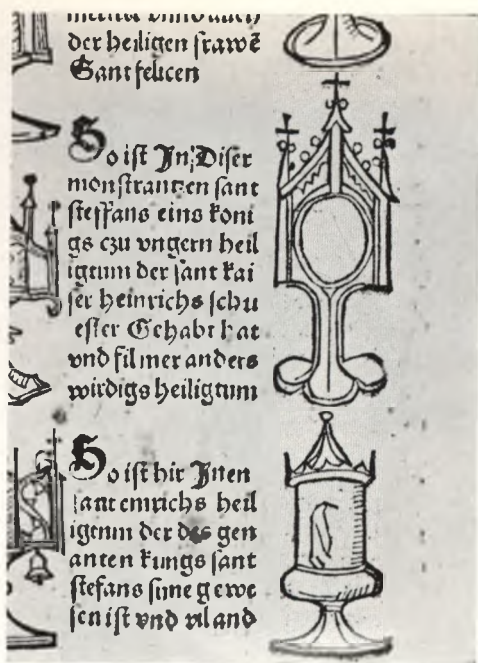 der heiligen frawē
Sant felicen
So ist In Diser
monstrantzen sant
steffans eins koni
gs czu vngern heil
igtum der sant kai
ser heinrichs schw
ester Gehabt hat
vnd fil mer anders
wirdigs heiligtum
So ist hir Inen
sant emrichs heil
igtum der des gen
anten kungs sant
stefans sune gewe
sen ist vnd vil and